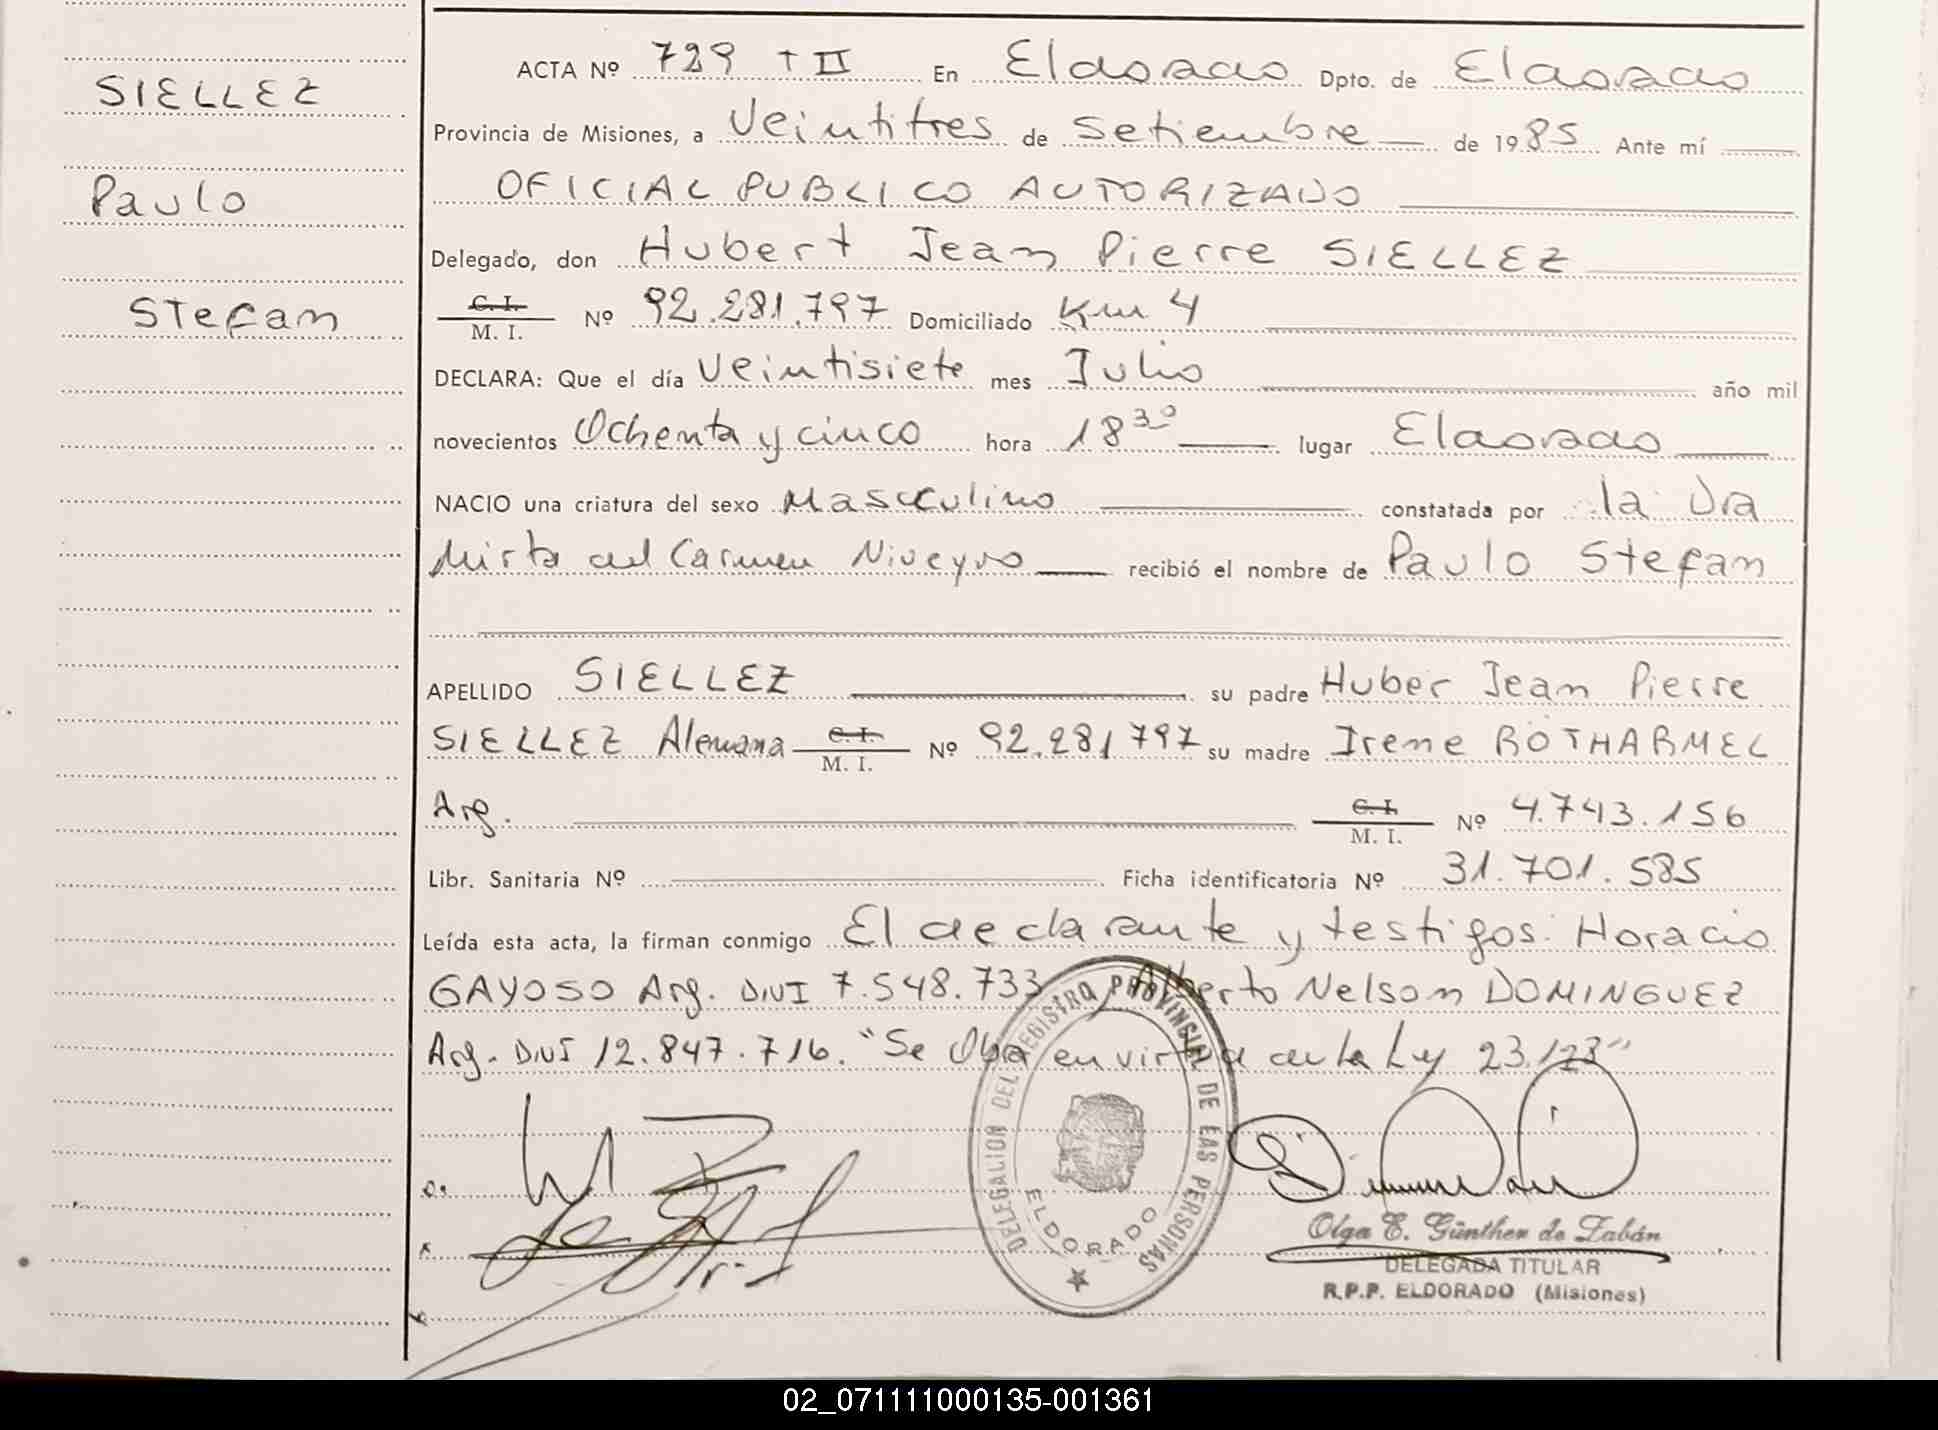 SIELLEZ
Paulo
Stefan
ACTA Nº 729 T II En Eldorado Dpto. de Eldorado
Provincia de Misiones, a Veintitres de Setiembre de 1985 Ante mí
OFICIAL PUBLICO AUTORIZADO
Delegado, don Hubert Jean Pierre SIELLEZ
C. I.
M. I. Nº 92.281.797 Domiciliado Km 4
DECLARA: Que el día Veintisiete mes Julio año mil
novecientos Ochenta y cinco hora 18 30 lugar Eldorado
NACIO una criatura del sexo Masculino constatada por la Dra
Mirta del Carmen Niveyro recibió el nombre de Paulo Stefan
APELLIDO SIELLEZ su padre Huber Jean Pierre
SIELLEZ Alemana C. I. M. I. Nº 92.281797 su madre Irene ROTHARMEL
Arg. C. I. M. I. Nº 4.743.156
Libr. Sanitaria Nº Ficha identificatoria Nº 31.701.585
Leída esta acta, la firman conmigo El declarante y testigos: Horacio
GAYOSO Arg. DNI 7.548.733 y Alberto Nelson DOMINGUEZ
Arg. DNI 12.847.716. "Se Oba en virtud de la Ley 23.128"
DELEGACION DEL REGISTRO PROVINCIAL DE LAS PERSONAS
ELDORADO
Olga E. Günther de Zabán
DELEGADA TITULAR
R.P.P. ELDORADO (Misiones)
02_071111000135-001361